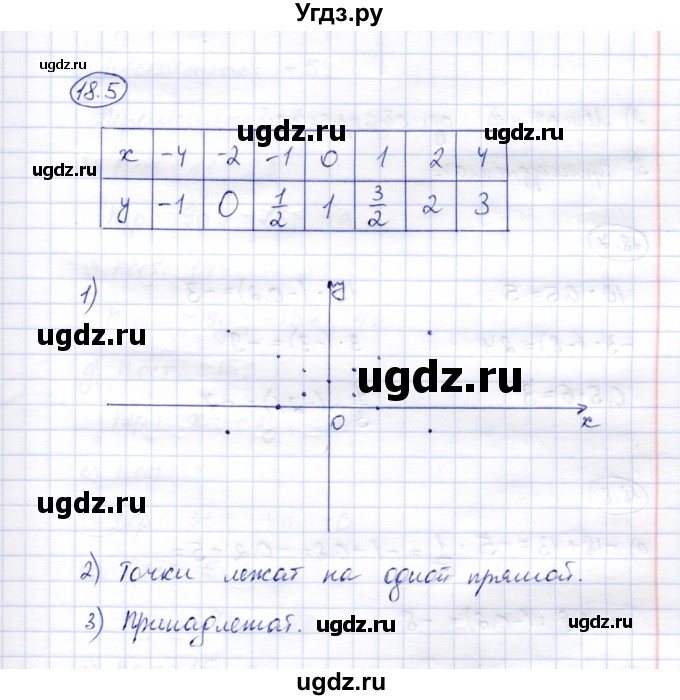 Угдз.ру
ugdz.ru
18.5
ugdz.ru ugdz.ru
x -4 -2 -1 0 1 2 4
ugdz.ru
y -1 0 1/2 1 3/2 2 3
1)
y
ugdz.ru
ugdz.ru
0 x
ugdz.ru
2) Точки лежат на одной прямой.
3) Принадлежат. ugdz.ru ugdz.ru
ugdz.ru